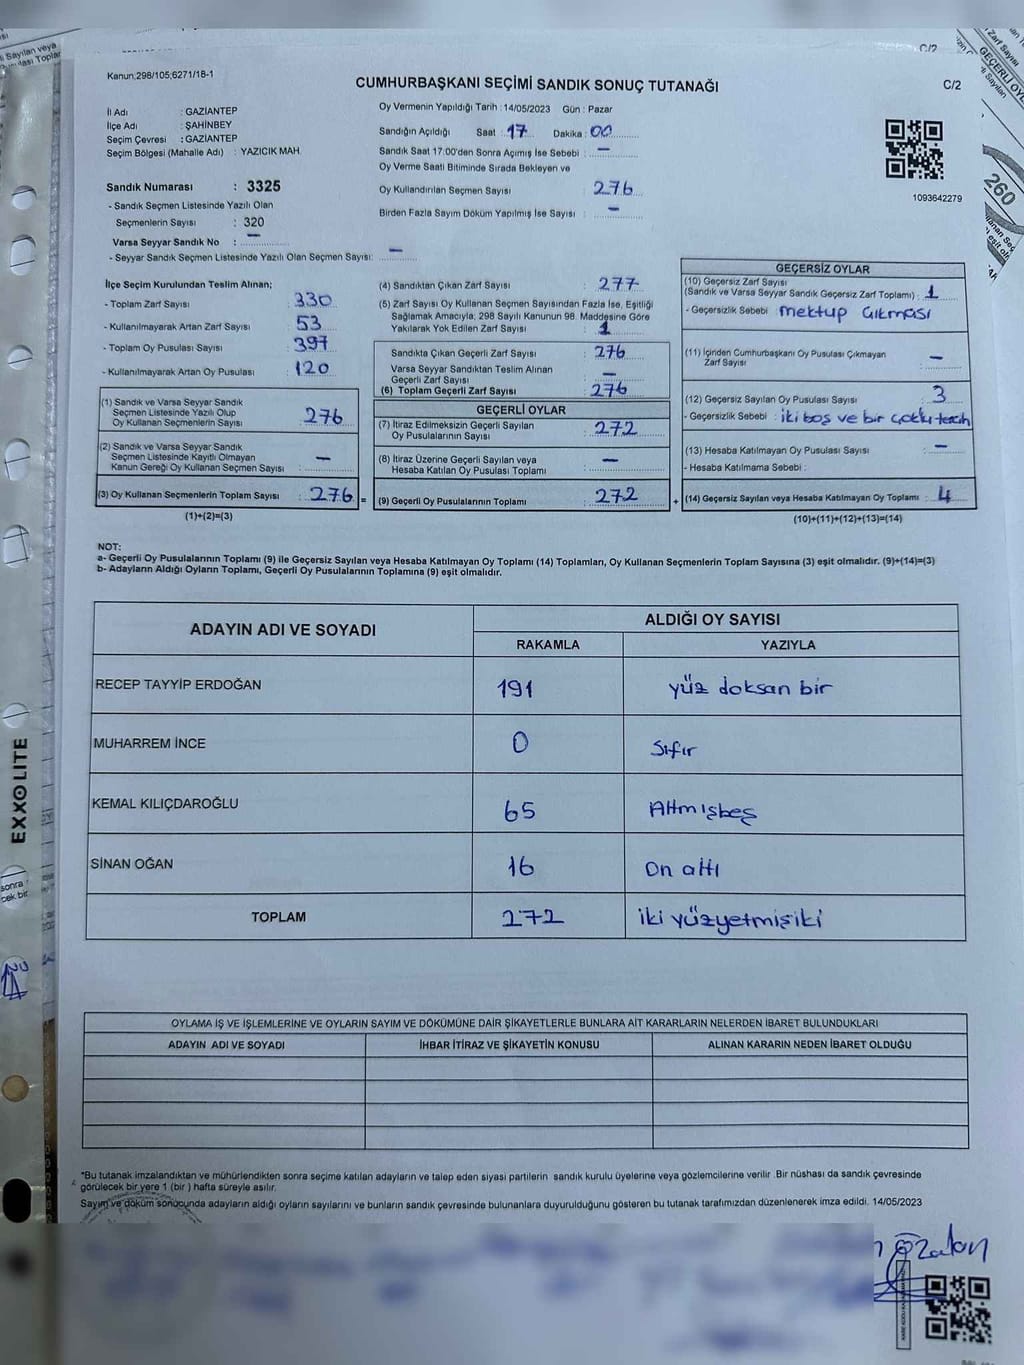 Kanun:298/105;6271/18-1
CUMHURBAŞKANI SEÇİMİ SANDIK SONUÇ TUTANAĞI
C/2
İl Adı : GAZİANTEP
İlçe Adı : ŞAHİNBEY
Seçim Çevresi : GAZİANTEP
Seçim Bölgesi (Mahalle Adı) : YAZICIK MAH.
Sandık Numarası : 3325
- Sandık Seçmen Listesinde Yazılı Olan
Seçmenlerin Sayısı : 320
Varsa Seyyar Sandık No : —
- Seyyar Sandık Seçmen Listesinde Yazılı Olan Seçmen Sayısı: —
Oy Vermenin Yapıldığı Tarih : 14/05/2023 Gün : Pazar
Sandığın Açıldığı Saat : 17 Dakika : 00
Sandık Saat 17:00'den Sonra Açılmış İse Sebebi : —
Oy Verme Saati Bitiminde Sırada Bekleyen ve
Oy Kullandırılan Seçmen Sayısı : 276
Birden Fazla Sayım Döküm Yapılmış İse Sayısı : —
1093642279
İlçe Seçim Kurulundan Teslim Alınan;
- Toplam Zarf Sayısı : 330
- Kullanılmayarak Artan Zarf Sayısı : 53
- Toplam Oy Pusulası Sayısı : 397
- Kullanılmayarak Artan Oy Pusulası : 120
(1) Sandık ve Varsa Seyyar Sandık
Seçmen Listesinde Yazılı Olup
Oy Kullanan Seçmenlerin Sayısı : 276
(2) Sandık ve Varsa Seyyar Sandık
Seçmen Listesinde Kayıtlı Olmayan
Kanun Gereği Oy Kullanan Seçmen Sayısı : —
(3) Oy Kullanan Seçmenlerin Toplam Sayısı : 276 =
(1)+(2)=(3)
(4) Sandıktan Çıkan Zarf Sayısı : 277
(5) Zarf Sayısı Oy Kullanan Seçmen Sayısından Fazla İse, Eşitliği
Sağlamak Amacıyla, 298 Sayılı Kanunun 98. Maddesine Göre
Yakılarak Yok Edilen Zarf Sayısı : 1
Sandıkta Çıkan Geçerli Zarf Sayısı : 276
Varsa Seyyar Sandıktan Teslim Alınan
Geçerli Zarf Sayısı : —
(6) Toplam Geçerli Zarf Sayısı : 276
GEÇERLİ OYLAR
(7) İtiraz Edilmeksizin Geçerli Sayılan
Oy Pusulalarının Sayısı : 272
(8) İtiraz Üzerine Geçerli Sayılan veya
Hesaba Katılan Oy Pusulası Toplamı : —
(9) Geçerli Oy Pusulalarının Toplamı : 272 +
GEÇERSİZ OYLAR
(10) Geçersiz Zarf Sayısı
(Sandık ve Varsa Seyyar Sandık Geçersiz Zarf Toplamı) : 1
- Geçersizlik Sebebi : mektup çıkması
(11) İçinden Cumhurbaşkanı Oy Pusulası Çıkmayan
Zarf Sayısı : —
(12) Geçersiz Sayılan Oy Pusulası Sayısı : 3
- Geçersizlik Sebebi : iki boş ve bir çoklu tercih
(13) Hesaba Katılmayan Oy Pusulası Sayısı : —
- Hesaba Katılmama Sebebi :
(14) Geçersiz Sayılan veya Hesaba Katılmayan Oy Toplamı : 4
(10)+(11)+(12)+(13)=(14)
NOT:
a- Geçerli Oy Pusulalarının Toplamı (9) ile Geçersiz Sayılan veya Hesaba Katılmayan Oy Toplamı (14) Toplamları, Oy Kullanan Seçmenlerin Toplam Sayısına (3) eşit olmalıdır. (9)+(14)=(3)
b- Adayların Aldığı Oyların Toplamı, Geçerli Oy Pusulalarının Toplamına (9) eşit olmalıdır.
ADAYIN ADI VE SOYADI ALDIĞI OY SAYISI
RAKAMLA YAZIYLA
RECEP TAYYİP ERDOĞAN 191 yüz doksan bir
MUHARREM İNCE 0 Sıfır
KEMAL KILIÇDAROĞLU 65 Altmışbeş
SİNAN OĞAN 16 On altı
TOPLAM 272 iki yüzyetmişiki
OYLAMA İŞ VE İŞLEMLERİNE VE OYLARIN SAYIM VE DÖKÜMÜNE DAİR ŞİKAYETLERLE BUNLARA AİT KARARLARIN NELERDEN İBARET BULUNDUKLARI
ADAYIN ADI VE SOYADI İHBAR İTİRAZ VE ŞİKAYETİN KONUSU ALINAN KARARIN NEDEN İBARET OLDUĞU
*Bu tutanak imzalandıktan ve mühürlendikten sonra seçime katılan adayların ve talep eden siyasi partilerin sandık kurulu üyelerine veya gözlemcilerine verilir .Bir nüshası da sandık çevresinde
görülecek bir yere 1 (bir ) hafta süreyle asılır.
Sayım ve döküm sonucunda adayların aldığı oyların sayılarını ve bunların sandık çevresinde bulunanlara duyurulduğunu gösteren bu tutanak tarafımızdan düzenlenerek imza edildi. 14/05/2023
EXXOLITE
260